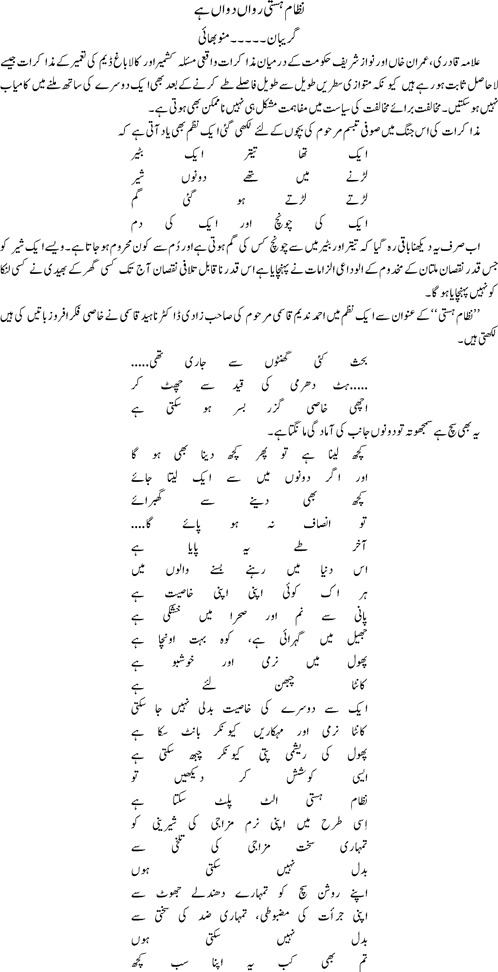 نظام ہستی رواں دواں ہے
گریبان۔۔۔۔۔منو بھائی
علامہ قادری، عمران خاں اور نواز شریف حکومت کے درمیان مذاکرات واقعی مسئلہ کشمیر اور کالا باغ ڈیم کی تعمیر کے مذاکرات جیسے
لاحاصل ثابت ہو رہے ہیں کیونکہ متوازی سطریں طویل سے طویل فاصلے طے کرنے کے بعد بھی ایک دوسرے کی ساتھ ملنے میں کامیاب
نہیں ہو سکتیں۔ مخالفت برائے مخالفت کی سیاست میں مفاہمت مشکل ہی نہیں ناممکن بھی ہوتی ہے۔
مذاکرات کی اس جنگ میں صوفی تبسم مرحوم کی بچوں کے لئے لکھی گئی ایک نظم بھی یاد آتی ہے کہ
ایک تھا تیتر ایک بٹیر
لڑنے میں تھے دونوں شیر
لڑتے لڑتے ہو گئی گم
ایک کی چونچ اور ایک کی دم
اب صرف یہ دیکھنا باقی رہ گیا کہ تیتر اور بٹیر میں سے چونچ کس کی گم ہوتی ہے اور دُم سے کون محروم ہو جاتا ہے۔ ویسے ایک شیر کو
جس قدر نقصان ملتان کے مخدوم کے الوداعی الزامات نے پہنچایا ہے اس قدر ناقابل تلافی نقصان آج تک کسی گھر کے بھیدی نے کسی لنکا
کو نہیں پہنچایا ہو گا۔
”نظام ہستی“ کے عنوان سے ایک نظم میں احمد ندیم قاسمی مرحوم کی صاحب زادی ڈاکٹر ناہید قاسمی نے خاصی فکر افروز باتیں کی ہیں
لکھتی ہیں۔
بحث کئی گھنٹوں سے جاری تھی.....
.....ہٹ دھرمی کی قید سے چھٹ کر
اچھی خاصی گزر بسر ہو سکتی ہے
یہ بھی سچ ہے سمجھوتہ تو دونوں جانب کی آمادگی مانگتا ہے۔
کچھ لینا ہے تو پھر کچھ دینا بھی ہو گا
اور اگر دونوں میں سے ایک لیتا جائے
کچھ بھی دینے سے گھبرائے
تو انصاف نہ ہو پائے گا....
آخر طے یہ پایا ہے
اس دنیا میں رہنے بسنے والوں میں
ہر اک کوئی اپنی اپنی خاصیت ہے
پانی سے نم اور صحرا میں خشکی ہے
جھیل میں گہرائی ہے، کوہ بہت اونچا ہے
پھول میں نرمی اور خوشبو ہے
کانٹا چبھن لئے ہے
ایک سے دوسرے کی خاصیت بدلی نہیں جا سکتی
کانٹا نرمی اور مہکاریں کیونکر بانٹ سکتا ہے
پھول کی ریشمی پتی کیونکر چبھ سکتی ہے
ایسی کوشش کر دیکھیں تو
نظام ہستی الٹ پلٹ سکتا ہے
اِسی طرح میں اپنی نرم مزاجی کی شیرینی کو
تمہاری سخت مزاجی کی تلخی سے
بدل نہیں سکتی ہوں
اپنے روشن سچ کو تمہارے دھندلے جھوٹ سے
اپنی جرأت کی مضبوطی، تمہاری ضد کی سختی سے
بدل نہیں سکتی ہوں
تم بھی کب یہ اپنا سب کچھ